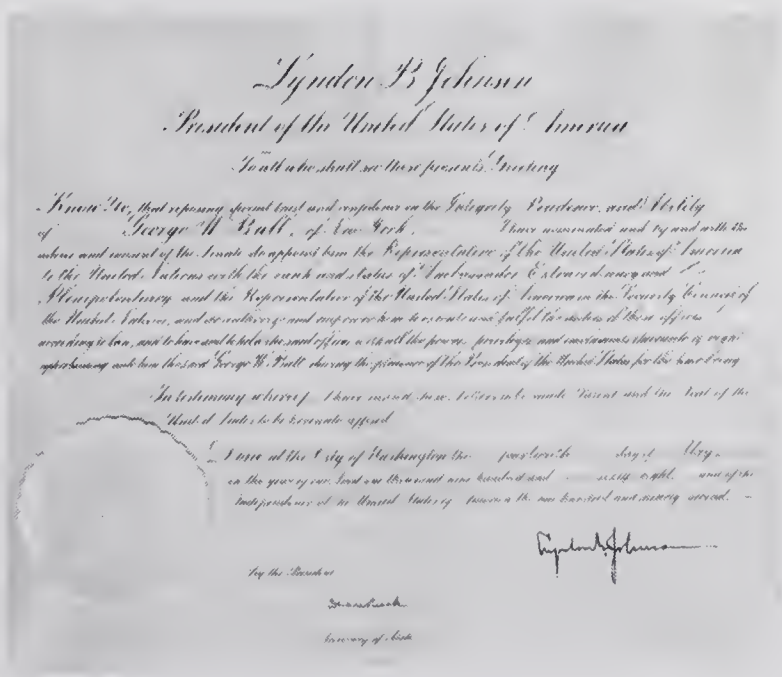 Lyndon B Johnson
President of the United States of America
To all who shall see these presents, Greeting
Know Ye, that reposing special trust and confidence in the Integrity Prudence, and Ability
of George W Ball, of New York, I have nominated and by and with the
advice and consent of the Senate do appoint him the Representative of the United States of America
to the United Nations with the rank and status of Ambassador Extraordinary and
Plenipotentiary and the Representative of the United States of America in the Security Council of
the United Nations, and do authorize and empower him to execute and fulfil the duties of these offices
according to law, and to have and to hold the said offices with all the powers privileges and emoluments thereunto of right
appertaining unto him the said George W Ball during the pleasure of the President of the United States for the time being
In testimony whereof I have caused these to be made Patent and the Seal of the
United States to be hereunto affixed
Done at the City of Washington this day of May
in the year of our Lord one thousand nine hundred and sixty eight and of the
Independence of the United States of America the one hundred and ninety second.
Lyndon B. Johnson
By the President
Dean Rusk
Secretary of State